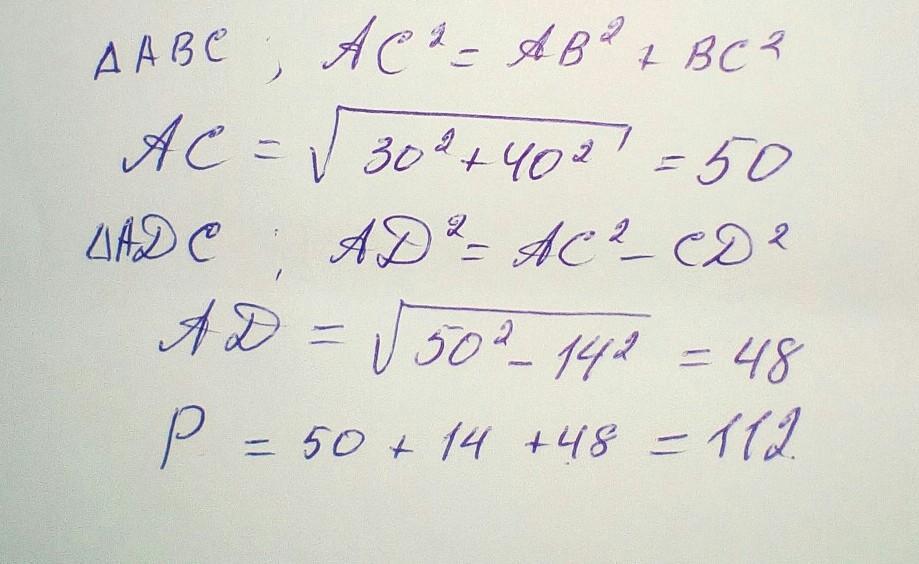 ΔABC ; AC² = AB² + BC²
AC = √30² + 40² = 50
ΔADC ; AD² = AC² - CD²
AD = √50² - 14² = 48
P = 50 + 14 + 48 = 112